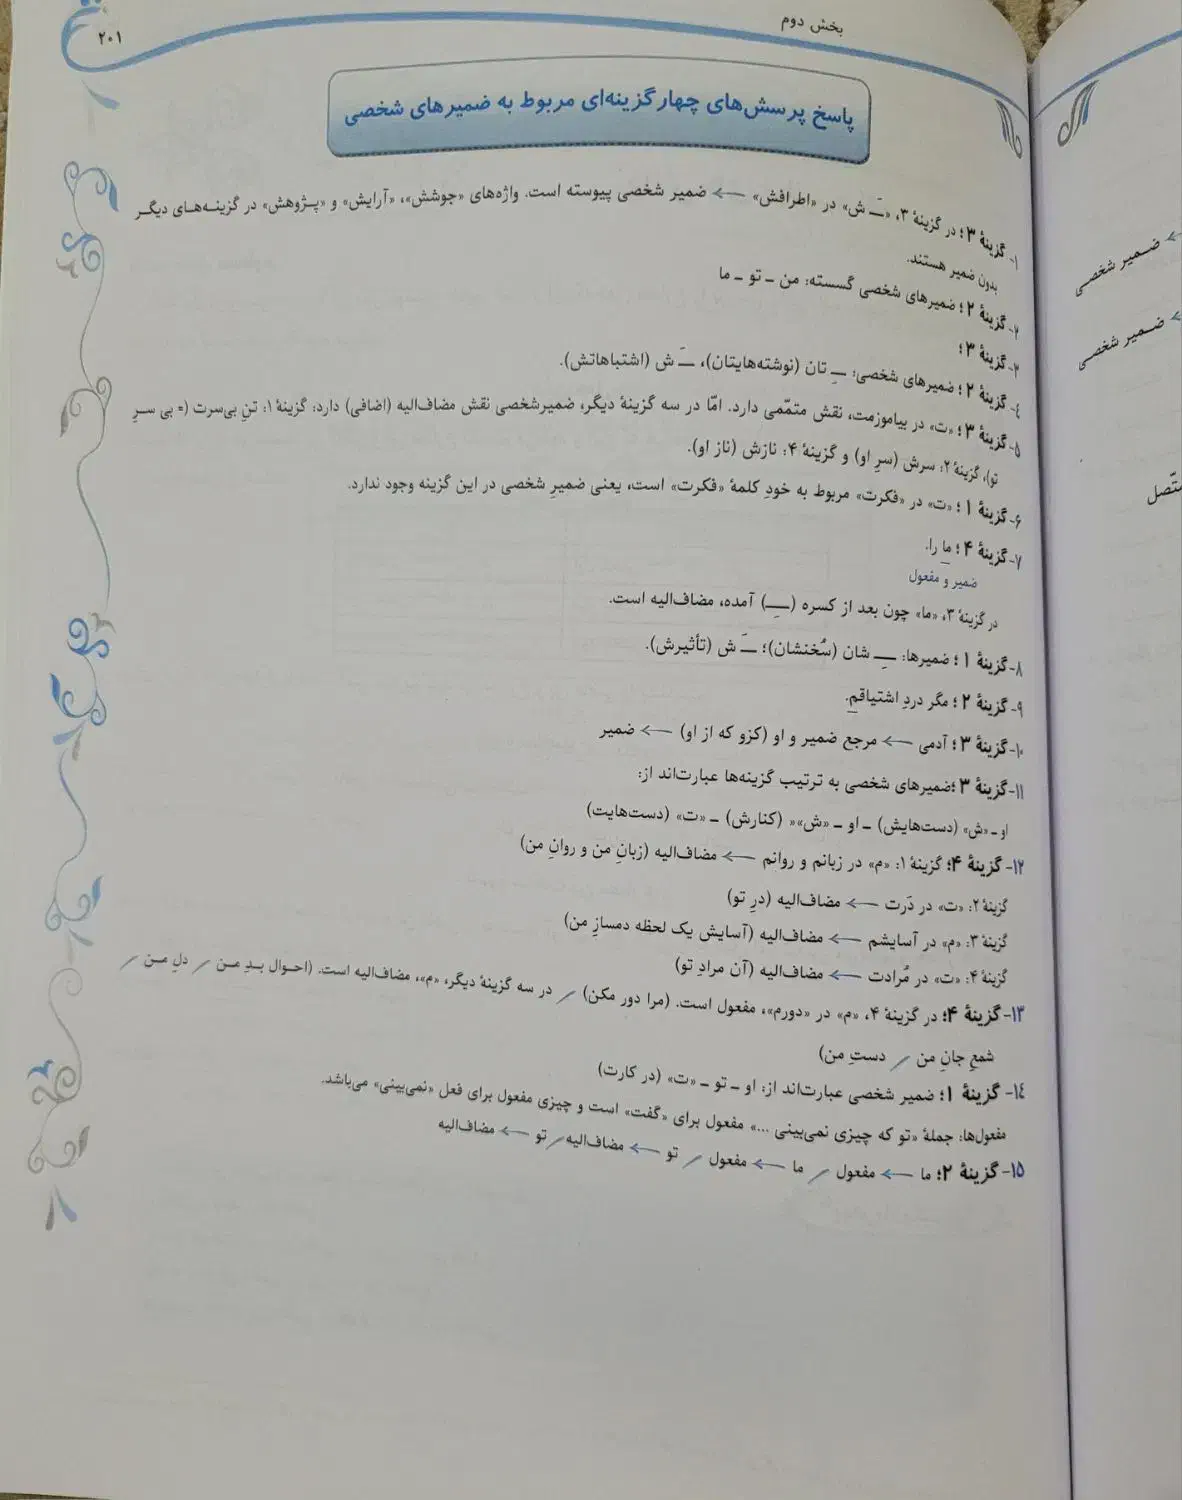 بخش دوم
۲۰۱
پاسخ پرسش‌های چهارگزینه‌ای مربوط به ضمیرهای شخصی
۱- گزینهٔ ۳؛ در گزینهٔ ۳، «ـَ ش» در «اطرافش» ← ضمیر شخصی پیوسته است. واژه‌های «جوشش»، «آرایش» و «پـژوهش» در گزینـه‌هـای دیگـر
بدون ضمیر هستند.
۲- گزینهٔ ۲؛ ضمیرهای شخصی گسسته: من ـ تو ـ ما
۳- گزینهٔ ۳؛
٤- گزینهٔ ۲؛ ضمیرهای شخصی: ـِ تان (نوشته‌هایتان)، ـَ ش (اشتباهاتش).
۵- گزینهٔ ۳؛ «ت» در بیاموزمت، نقش متمّمی دارد. امّا در سه گزینهٔ دیگر، ضمیرشخصی نقش مضاف‌الیه (اضافی) دارد: گزینهٔ ۱: تنِ بی‌سرت (= بی سـرِ
تو)، گزینهٔ ۲: سرش (سرِ او) و گزینهٔ ۴: نازش (ناز او).
۶- گزینهٔ ۱؛ «ت» در «فکرت» مربوط به خودِ کلمهٔ «فکرت» است، یعنی ضمیرِ شخصی در این گزینه وجود ندارد.
۷- گزینهٔ ۴؛ ما را.
ضمیر و مفعول
در گزینهٔ ۳، «ما» چون بعد از کسره (ـِ) آمده، مضاف‌الیه است.
۸- گزینهٔ ۱؛ ضمیرها: ـِ شان (سُخنشان)؛ ـَ ش (تأثیرش).
۹- گزینهٔ ۲؛ مگر دردِ اشتیاقم.
۱۰- گزینهٔ ۳؛ آدمی ← مرجع ضمیر و او (کزو که از او) ← ضمیر
۱۱- گزینهٔ ۳؛ضمیرهای شخصی به ترتیب گزینه‌ها عبارت‌اند از:
او ـ «ش» (دست‌هایش) ـ او ـ «ش»« (کنارش) ـ «ت» (دست‌هایت)
۱۲- گزینهٔ ۴؛ گزینهٔ ۱: «م» در زبانم و روانم ← مضاف‌الیه (زبانِ من و روانِ من)
گزینهٔ ۲: «ت» در دَرت ← مضاف‌الیه (درِ تو)
گزینهٔ ۳: «م» در آسایشم ← مضاف‌الیه (آسایش یک لحظه دمسازِ من)
گزینهٔ ۴: «ت» در مُرادت ← مضاف‌الیه (آن مرادِ تو)
۱۳- گزینهٔ ۴؛ در گزینهٔ ۴، «م» در «دورم»، مفعول است. (مرا دور مکن) / در سه گزینهٔ دیگر، «م»، مضاف‌الیه است. (احـوال بـدِ مـن / دلِ مـن /
شمعِ جانِ من / دستِ من)
۱٤- گزینهٔ ۱؛ ضمیر شخصی عبارت‌اند از: او ـ تو ـ «ت» (در کارت)
مفعول‌ها: جملهٔ «تو که چیزی نمی‌بینی ...» مفعول برای «گفت» است و چیزی مفعول برای فعل «نمی‌بینی» می‌باشد.
۱۵- گزینهٔ ۲؛ ما ← مفعول / ما ← مفعول / تو ← مضاف‌الیه/ تو ← مضاف‌الیه
← ضـمیر شخصـی
← ضـمیر شخصـی
متّصل